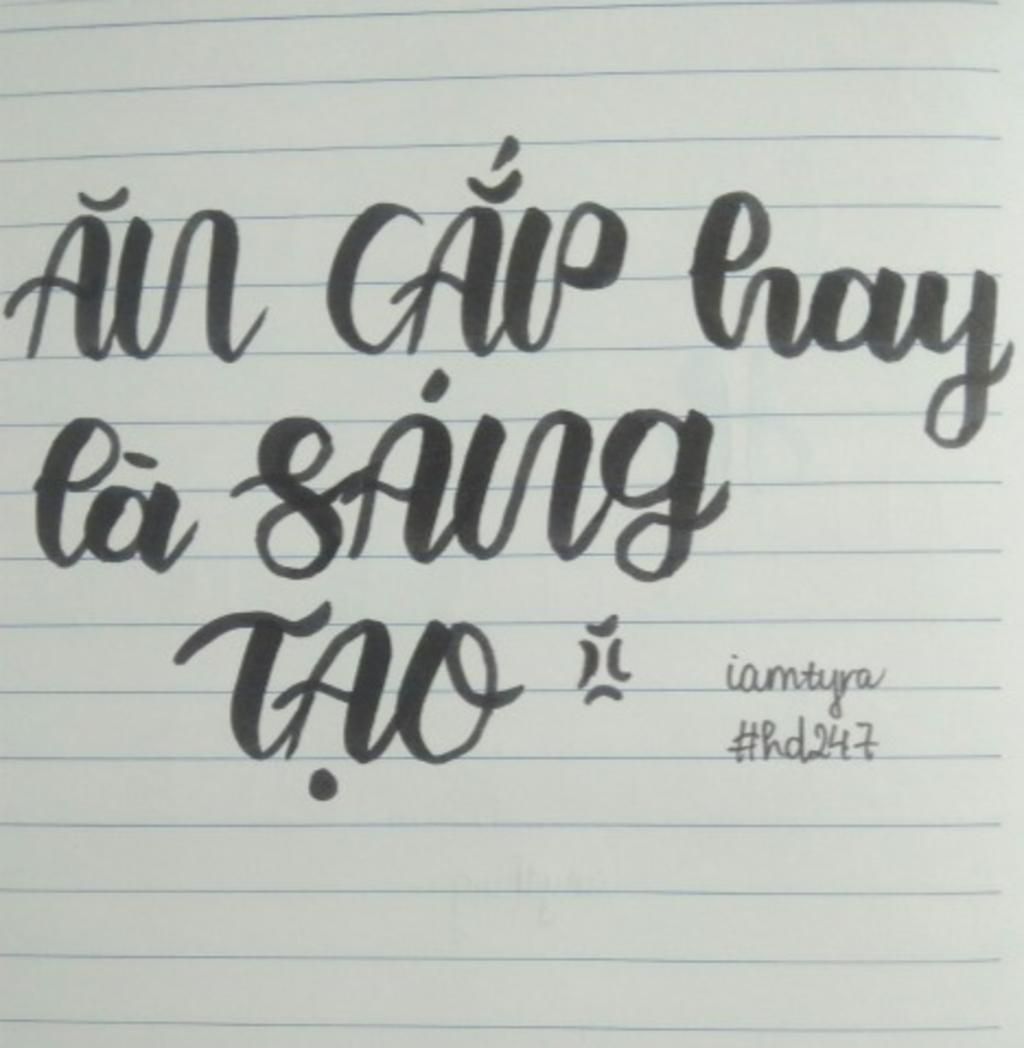 ĂN CẮP hay
là SÁNG
TẠO
iamtyra
#hd247